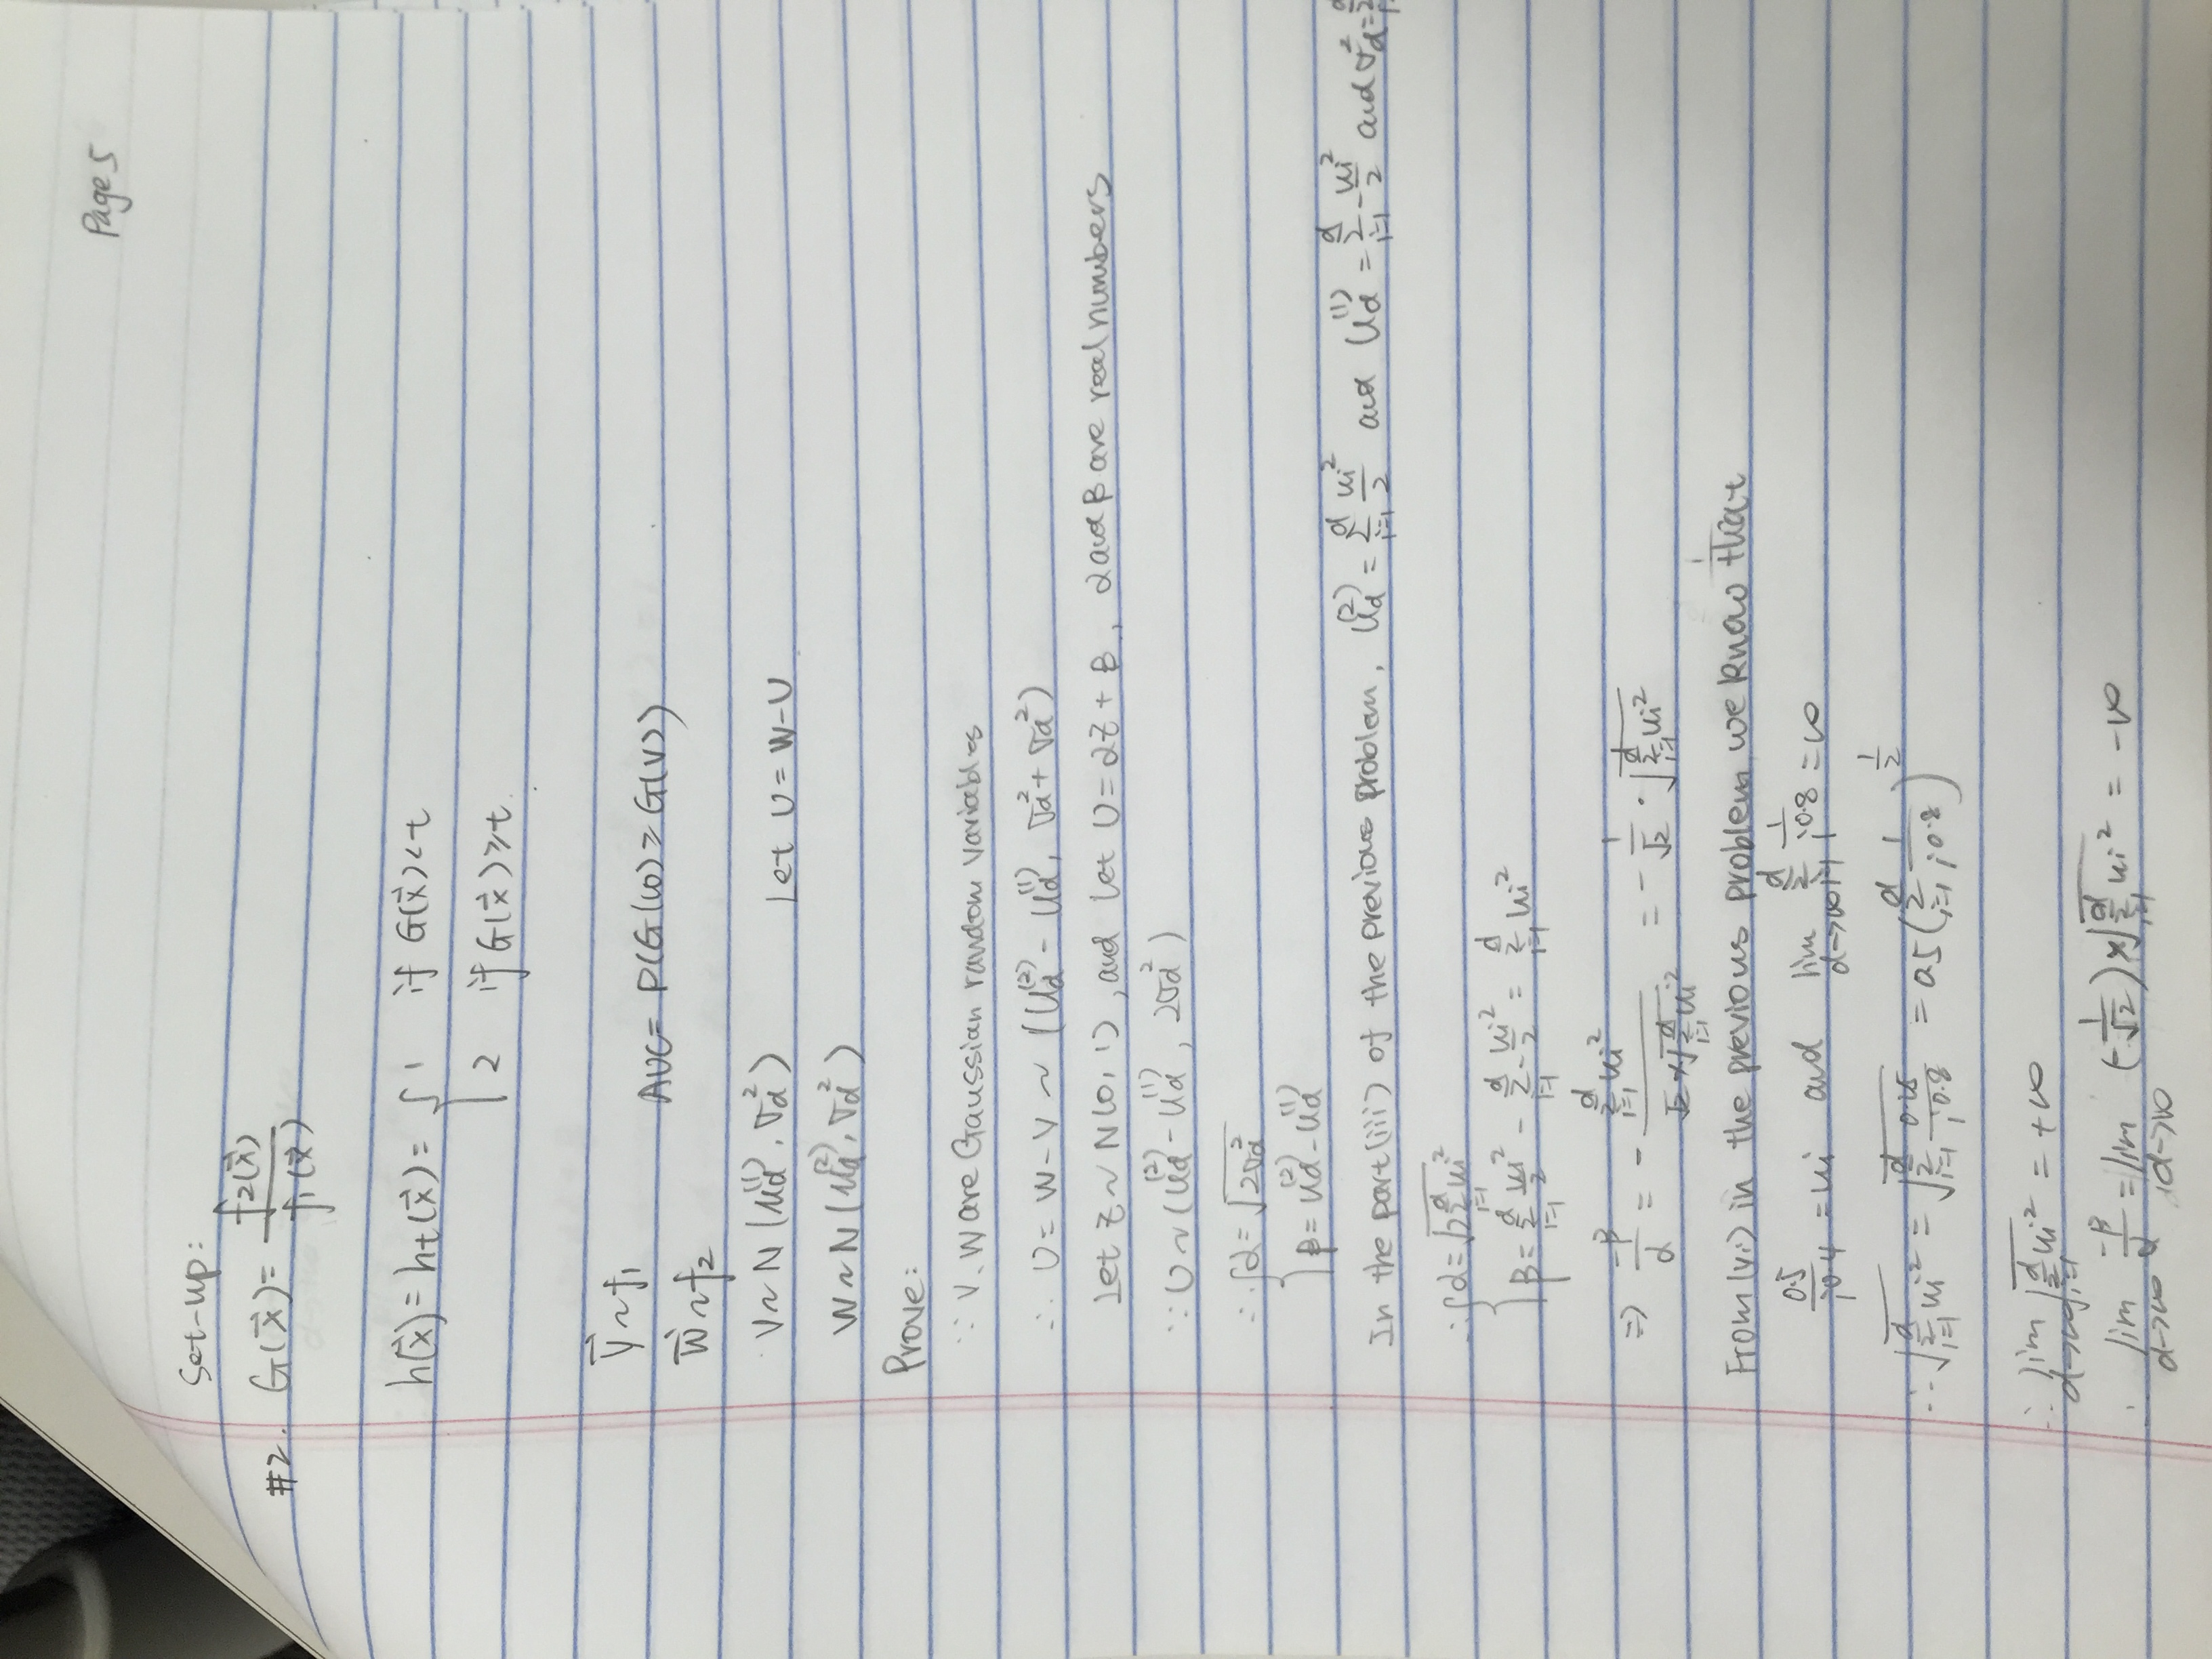 Page 5
Set-up:
#2. G(x⃗) = f₂(x⃗) / f₁(x⃗)
h(x⃗) = ht(x⃗) = { 1 if G(x⃗) < t
2 if G(x⃗) ≥ t.
V⃗ ~ f₁
AUC = P(G(W) ≥ G(V))
W⃗ ~ f₂
V ~ N(μd⁽¹⁾, σd²) Let U = W-U
W ~ N(μd⁽²⁾, σd²)
Prove:
∵ V, W are Gaussian random variables
∴ U = W - V ~ (μd⁽²⁾ - μd⁽¹⁾, σd² + σd²)
Let Z ~ N(0, 1), and let U = αZ + β, α and β are real numbers
∵ U ~ (μd⁽²⁾ - μd⁽¹⁾, 2σd²)
∴ { α = √(2σd²)
β = μd⁽²⁾ - μd⁽¹⁾
In the part (iii) of the previous problem, μd⁽²⁾ = Σᵢ₌₁ᵈ μi²/2 and μd⁽¹⁾ = Σᵢ₌₁ᵈ -μi²/2 and σd² =
∴ { α = √(2Σᵢ₌₁ᵈ μi²)
β = Σᵢ₌₁ᵈ μi²/2 - Σᵢ₌₁ᵈ -μi²/2 = Σᵢ₌₁ᵈ μi²
⇒ -β/α = - Σᵢ₌₁ᵈ μi² / (√2 × √(Σᵢ₌₁ᵈ μi²)) = - 1/√2 · √(Σᵢ₌₁ᵈ μi²)
From (vi) in the previous problem we know that
0.5/i^0.4 = μi and lim d→∞ Σᵢ₌₁ᵈ 1/i^0.8 = ∞
∴ √(Σᵢ₌₁ᵈ μi²) = √(Σᵢ₌₁ᵈ 0.25/i^0.8) = 0.5(Σᵢ₌₁ᵈ 1/i^0.8)^(1/2)
∴ lim d→∞ √(Σᵢ₌₁ᵈ μi²) = +∞
∴ lim d→∞ -β/α = lim d→∞ (-1/√2) × √(Σᵢ₌₁ᵈ μi²) = -∞